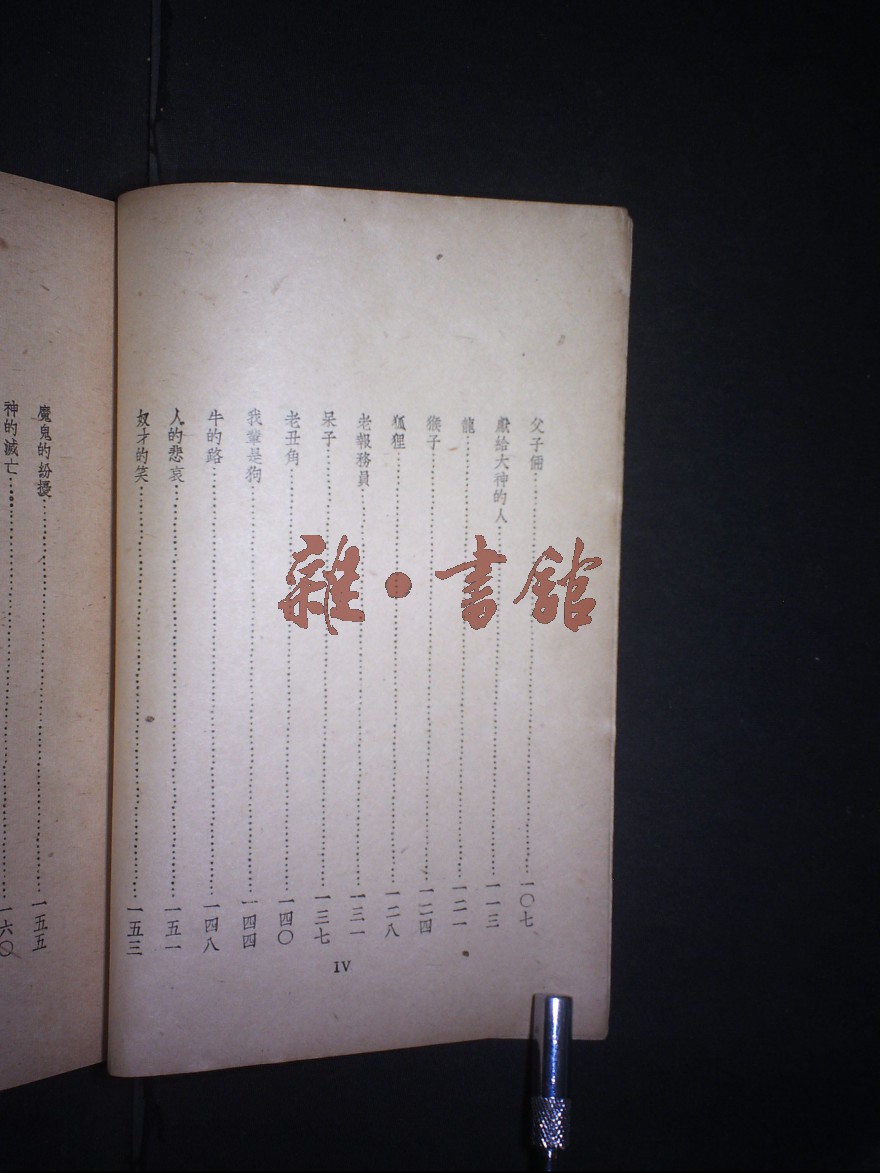 父子倆……一〇七
獻給大神的人……一一三
龍……一二一
猴子……一二四
狐狸……一二八
老報務員……一三一
呆子……一三七
老丑角……一四〇
我輩是狗……一四四
牛的路……一四八
人的悲哀……一五一
奴才的笑……一五三
IV
魔鬼的紛擾……一五五
神的滅亡……一六〇
雜·書館